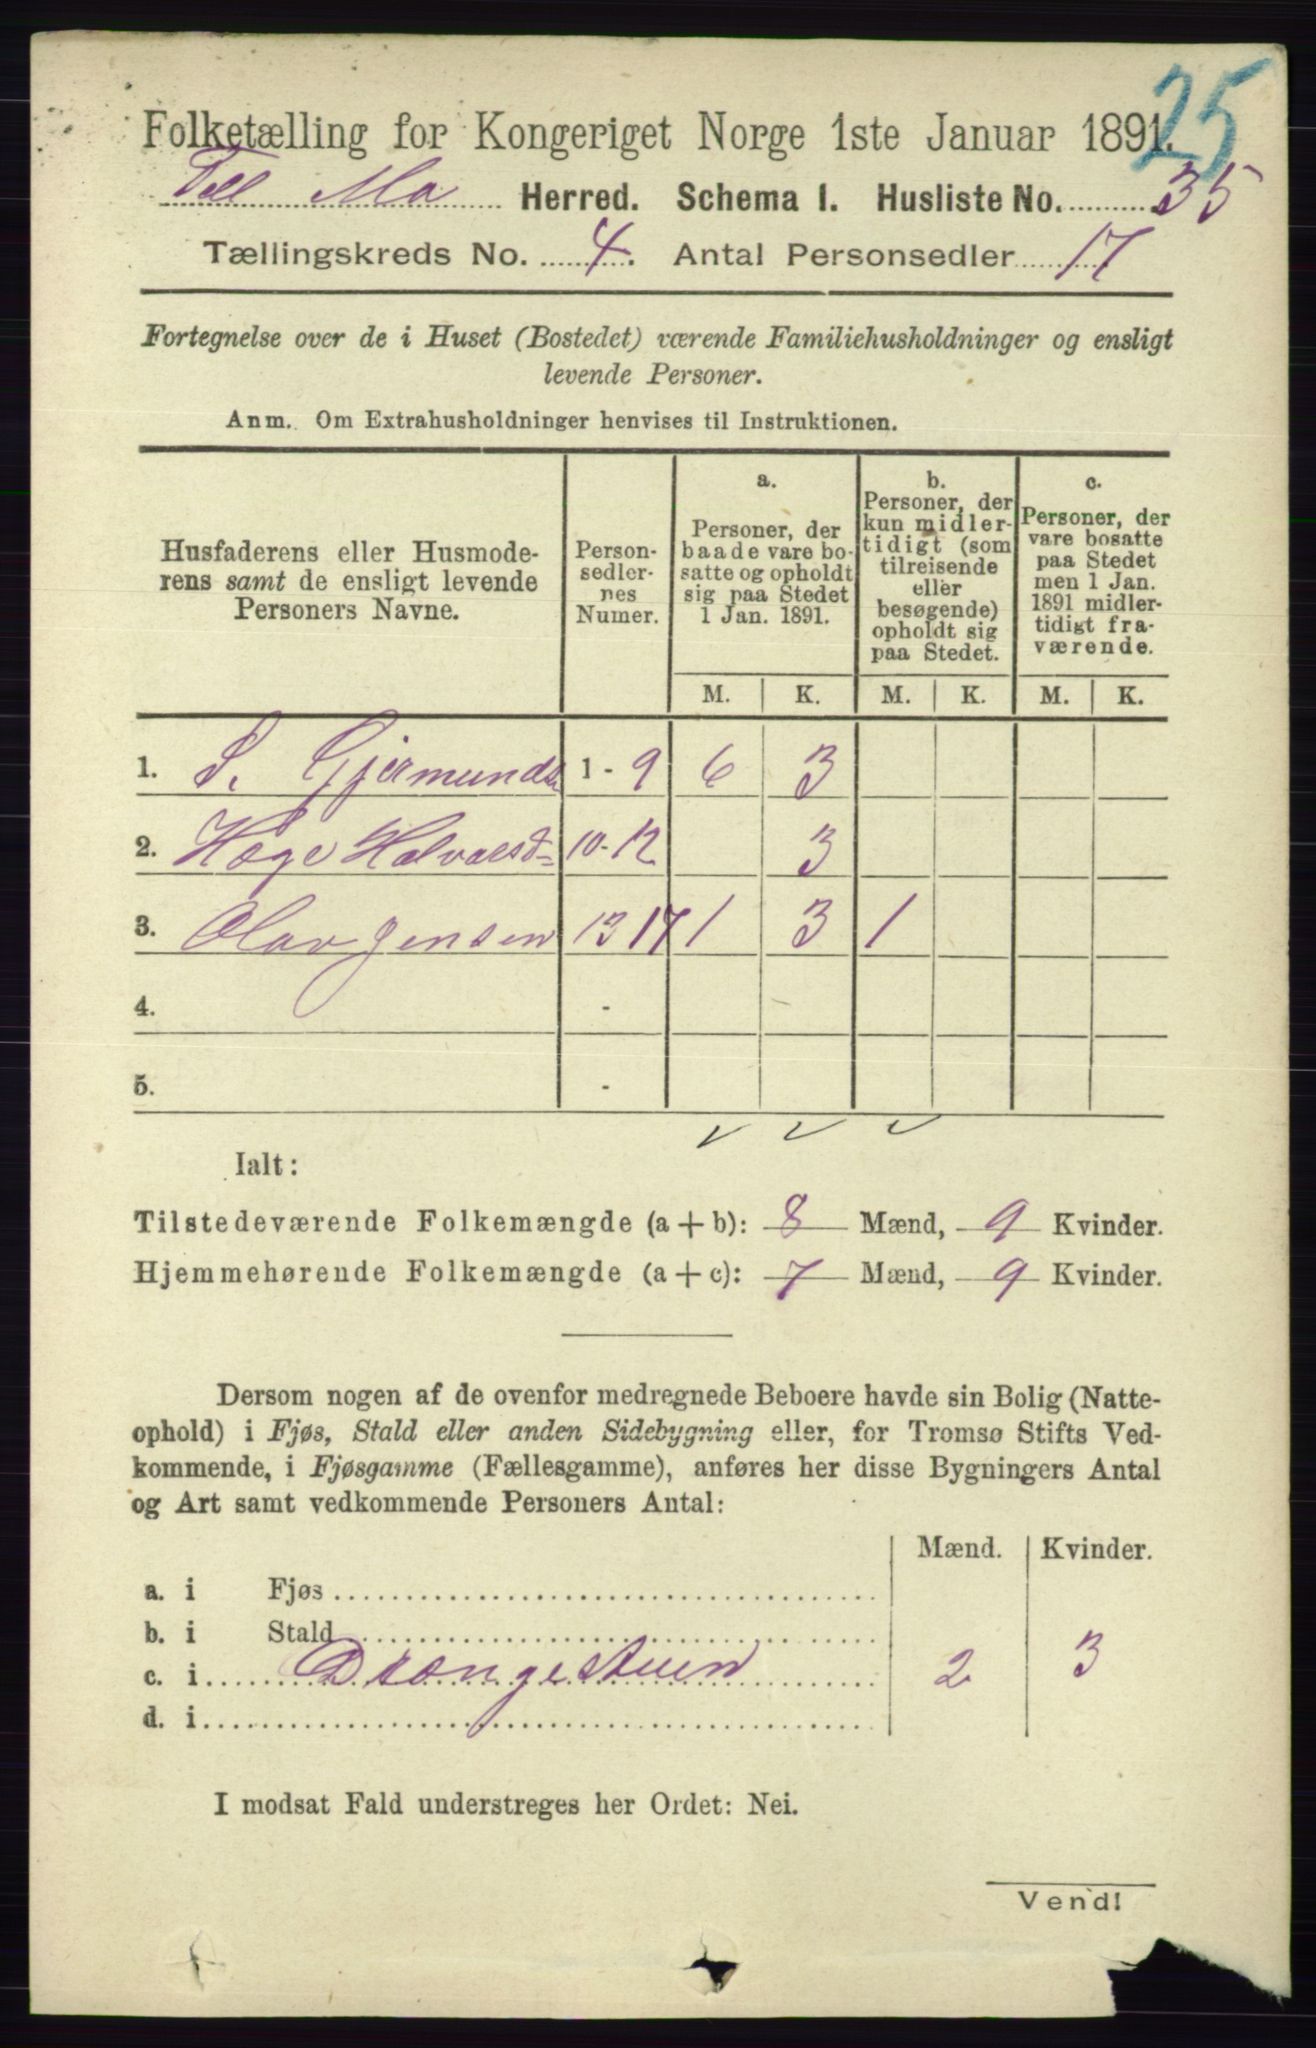 25
Folketælling for Kongeriget Norge 1ste Januar 1891.
Tell Mo Herred. Schema I. Husliste No. 35
Tællingskreds No. 4. Antal Personsedler 17
Fortegnelse over de i Huset (Bostedet) værende Familiehusholdninger og ensligt
levende Personer.
Anm. Om Extrahusholdninger henvises til Instruktionen.
Husfaderens eller Husmode-
rens samt de ensligt levende
Personers Navne.
Person-
sedler-
nes
Numer.
a.
Personer, der
baade vare bo-
satte og opholdt
sig paa Stedet
1 Jan. 1891.
b.
Personer, der
kun midler-
tidigt (som
tilreisende
eller
besøgende)
opholdt sig
paa Stedet.
c.
Personer, der
vare bosatte
paa Stedet
men 1 Jan.
1891 midler-
tidigt fra-
værende.
M. K. M. K. M. K.
1. S. Gjermunds 1 - 9 6 3
2. Hæge Halvorsd= 10-12 3
3. Olav Jensen 13 17 1 3 1
4. -
5. -
Ialt:
Tilstedeværende Folkemængde (a + b): 8 Mænd, 9 Kvinder.
Hjemmehørende Folkemængde (a + c): 7 Mænd, 9 Kvinder.
Dersom nogen af de ovenfor medregnede Beboere havde sin Bolig (Natte-
ophold) i Fjøs, Stald eller anden Sidebygning eller, for Tromsø Stifts Ved-
kommende, i Fjøsgamme (Fællesgamme), anføres her disse Bygningers Antal
og Art samt vedkommende Personers Antal:
Mænd. Kvinder.
a. i Fjøs
b. i Stald
c. i Drængestuen 2 3
d. i
I modsat Fald understreges her Ordet: Nei.
Vend!